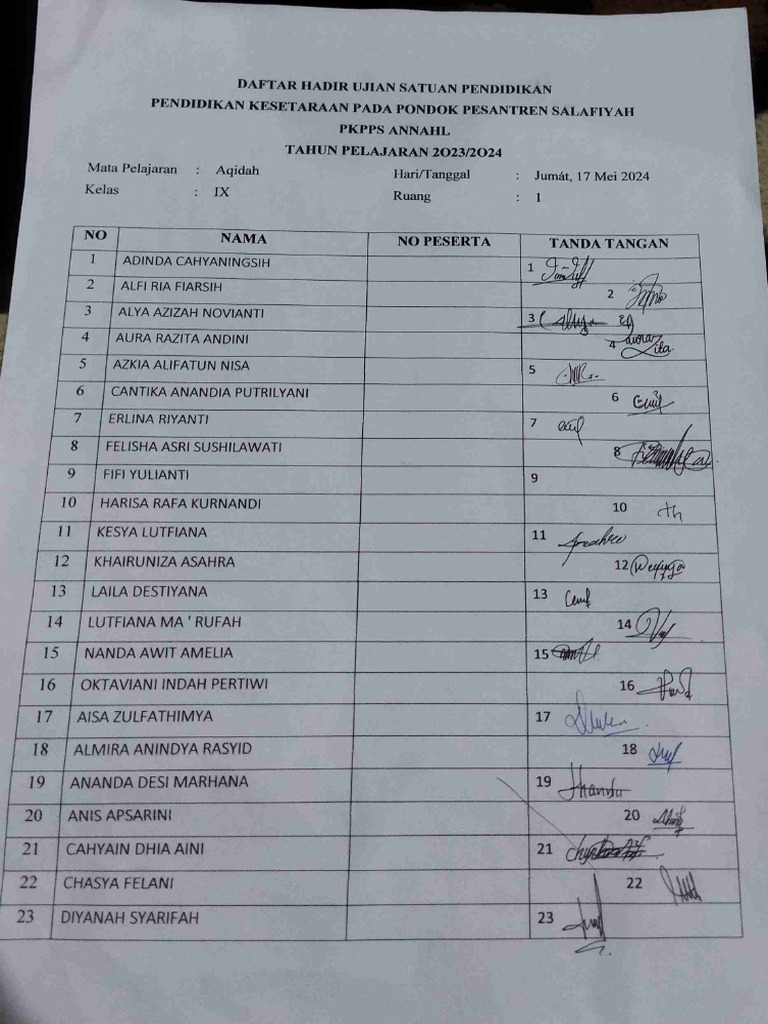 DAFTAR HADIR UJIAN SATUAN PENDIDIKAN
PENDIDIKAN KESETARAAN PADA PONDOK PESANTREN SALAFIYAH
PKPPS ANNAHL
TAHUN PELAJARAN 2O23/2O24
Mata Pelajaran : Aqidah Hari/Tanggal : Jumát, 17 Mei 2024
Kelas : IX Ruang : 1
NO NAMA NO PESERTA TANDA TANGAN
1 ADINDA CAHYANINGSIH 1
2 ALFI RIA FIARSIH 2
3 ALYA AZIZAH NOVIANTI 3
4 AURA RAZITA ANDINI 4
5 AZKIA ALIFATUN NISA 5
6 CANTIKA ANANDIA PUTRILYANI 6
7 ERLINA RIYANTI 7
8 FELISHA ASRI SUSHILAWATI 8
9 FIFI YULIANTI 9
10 HARISA RAFA KURNANDI 10
11 KESYA LUTFIANA 11
12 KHAIRUNIZA ASAHRA 12
13 LAILA DESTIYANA 13
14 LUTFIANA MA ' RUFAH 14
15 NANDA AWIT AMELIA 15
16 OKTAVIANI INDAH PERTIWI 16
17 AISA ZULFATHIMYA 17
18 ALMIRA ANINDYA RASYID 18
19 ANANDA DESI MARHANA 19
20 ANIS APSARINI 20
21 CAHYAIN DHIA AINI 21
22 CHASYA FELANI 22
23 DIYANAH SYARIFAH 23